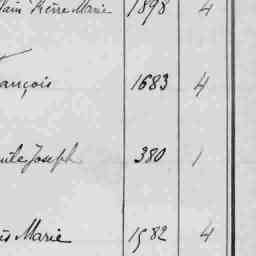 Pierre Marie 1898 4
ançois 1683 4
Joseph 380 1
is Marie 1582 4